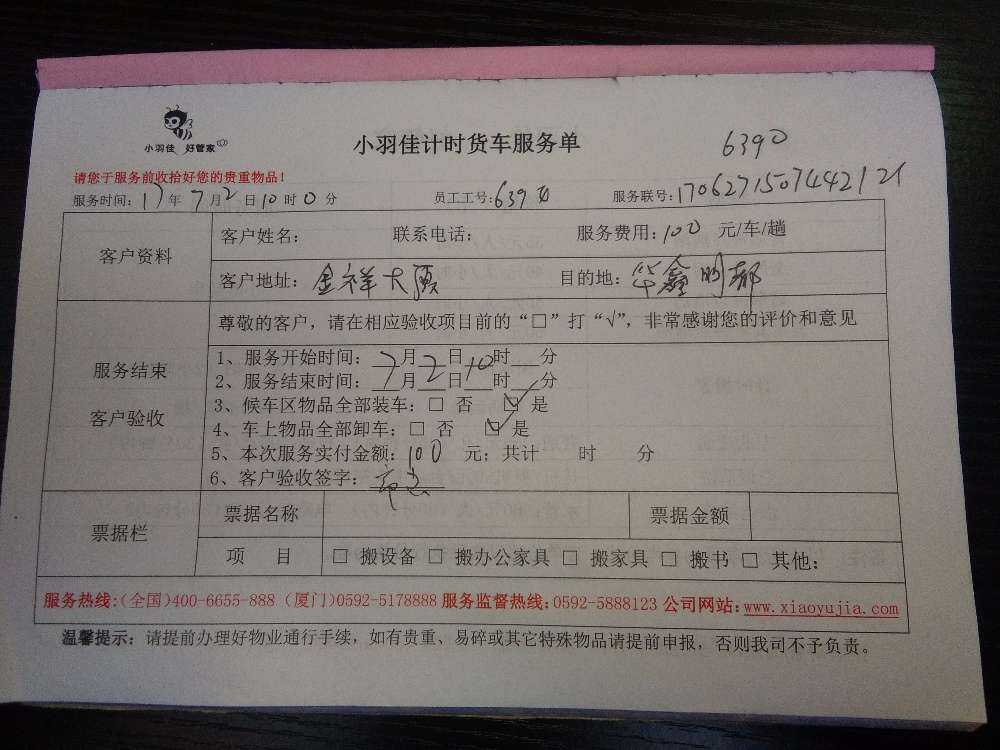 小羽佳 好管家
小羽佳计时货车服务单
6390
请您于服务前收拾好您的贵重物品！
服务时间：17年7月2日10时0分 员工工号：6390 服务联号：
客户资料
客户姓名： 联系电话： 服务费用：100 元/车/趟
客户地址：金祥大厦 目的地：华鑫明都
服务结束
客户验收
尊敬的客户，请在相应验收项目前的“□”打“√”，非常感谢您的评价和意见
1、服务开始时间：7月2日10时__分
2、服务结束时间：__月__日__时__分
3、候车区物品全部装车：□ 否 ☑ 是
4、车上物品全部卸车：□ 否 ☑ 是
5、本次服务实付金额：100 元；共计 时 分
6、客户验收签字：
票据栏
票据名称 票据金额
项 目 □ 搬设备 □ 搬办公家具 □ 搬家具 □ 搬书 □ 其他：
服务热线：(全国)400-6655-888 (厦门)0592-5178888 服务监督热线：0592-5888123 公司网站：www.xiaoyujia.com
温馨提示：请提前办理好物业通行手续，如有贵重、易碎或其它特殊物品请提前申报，否则我司不予负责。